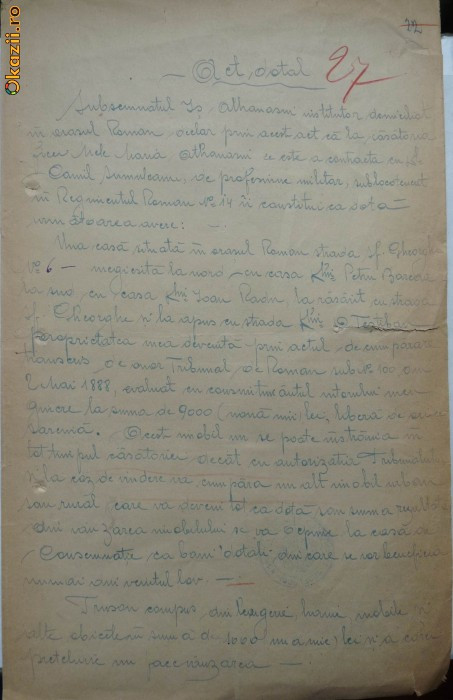 Okazii.ro
22
Act dotal 27
Subsemnatul Athanasiu institutor domiciliat
în orasul Roman, declar prin acest act că la căsătoria
ficei Mele Maria Athanasiu ce este a contracta cu
Camil de profesiune militar, sublocotenent
în Regimentul Roman No 14 îi constitui ca dota
următoarea avere:
Una casă situată în orasul Roman strada sf. Gheorghe
No 6 megiesită la nord cu casa Petru
la sud cu casa Ioan la răsărit cu strada
sf. Gheorghe si la apus cu strada
proprietatea mea devenită prin actul de cumpărare
transcris de onor Tribunal de Roman sub No 100, din
2 Mai 1888, evaluat cu consimtimântul viitorului meu
ginere la suma de 9000 (nouă mii) lei, liberă de orice
sarcină. Acest imobil nu se poate instrăina în
tot timpul căsătoriei decât cu autorizatia Tribunalului
si la caz de vindere va cumpăra un alt imobil urban
sau rural care va deveni tot ca dota sau suma
din vanzarea imobilului se va depune la casa de
Consemnatie ca bani dotali, din care se vor beneficia
numai din venitul lor.
Trusou compus din haine mobile si
alte obiecte în sumă de 1000 (una mie) lei si a căror
preteluire nu face vânzarea